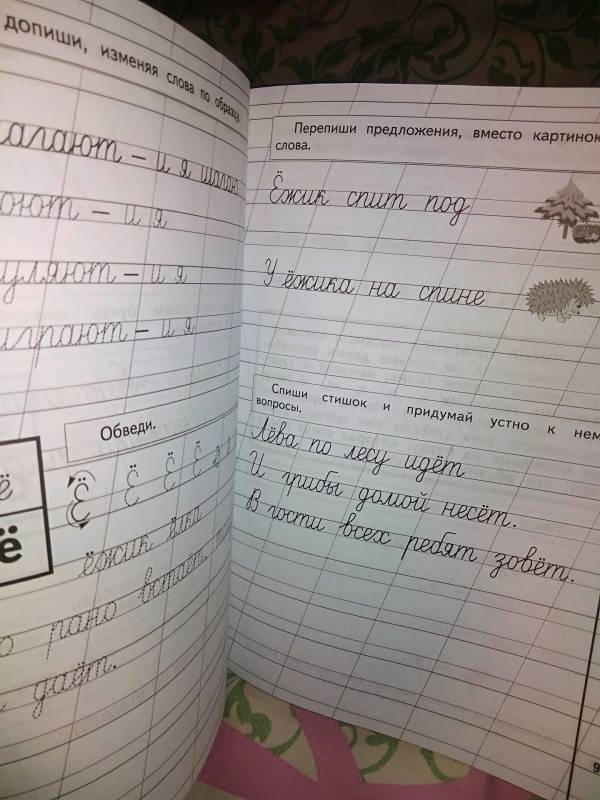 допиши, изменяя слова по образцу.
– и я шагаю
– и я
– и я
играют – и я
Обведи.
Ё Ё Ё Ё
ё
ё
ёжик ёлка
рано встаёт,
даёт.
Перепиши предложения, вместо картинок
слова.
Ёжик спит под
У ёжика на спине
Спиши стишок и придумай устно к нем
вопросы.
Лёва по лесу идёт
И грибы домой несёт.
В гости всех ребят зовёт.
9